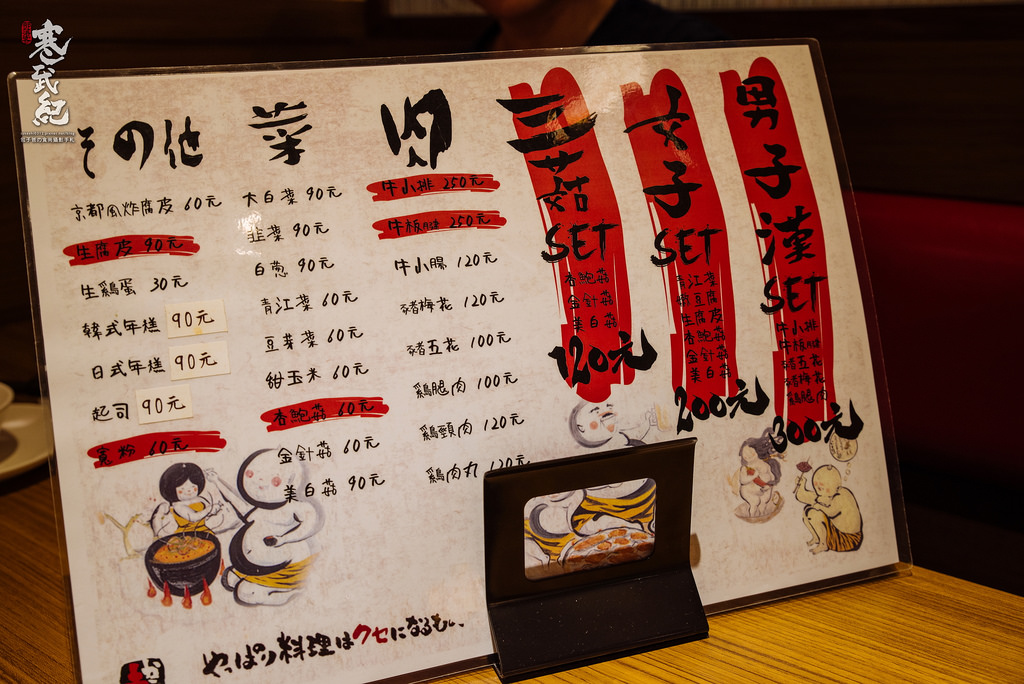 寒武紀
その他
京都風炸腐皮 60元
生腐皮 90元
生鷄蛋 30元
韓式年糕 90元
日式年糕 90元
起司 90元
寬粉 60元
菜
大白菜 90元
韭菜 90元
白蔥 90元
青江菜 60元
豆芽菜 60元
甜玉米 60元
杏鮑菇 60元
金針菇 60元
美白菇 90元
肉
牛小排 250元
牛板腱 250元
牛小腸 120元
豬梅花 120元
豬五花 100元
鷄腿肉 100元
鷄頸肉 120元
鷄肉丸 120元
三菇SET
杏鮑菇
金針菇
美白菇
120元
女子SET
青江菜
豆腐
生腐皮
杏鮑菇
金針菇
美白菇
200元
男子漢SET
牛小排
牛板腱
豬五花
豬梅花
鷄腿肉
300元
やっぱり料理はクセになるもん